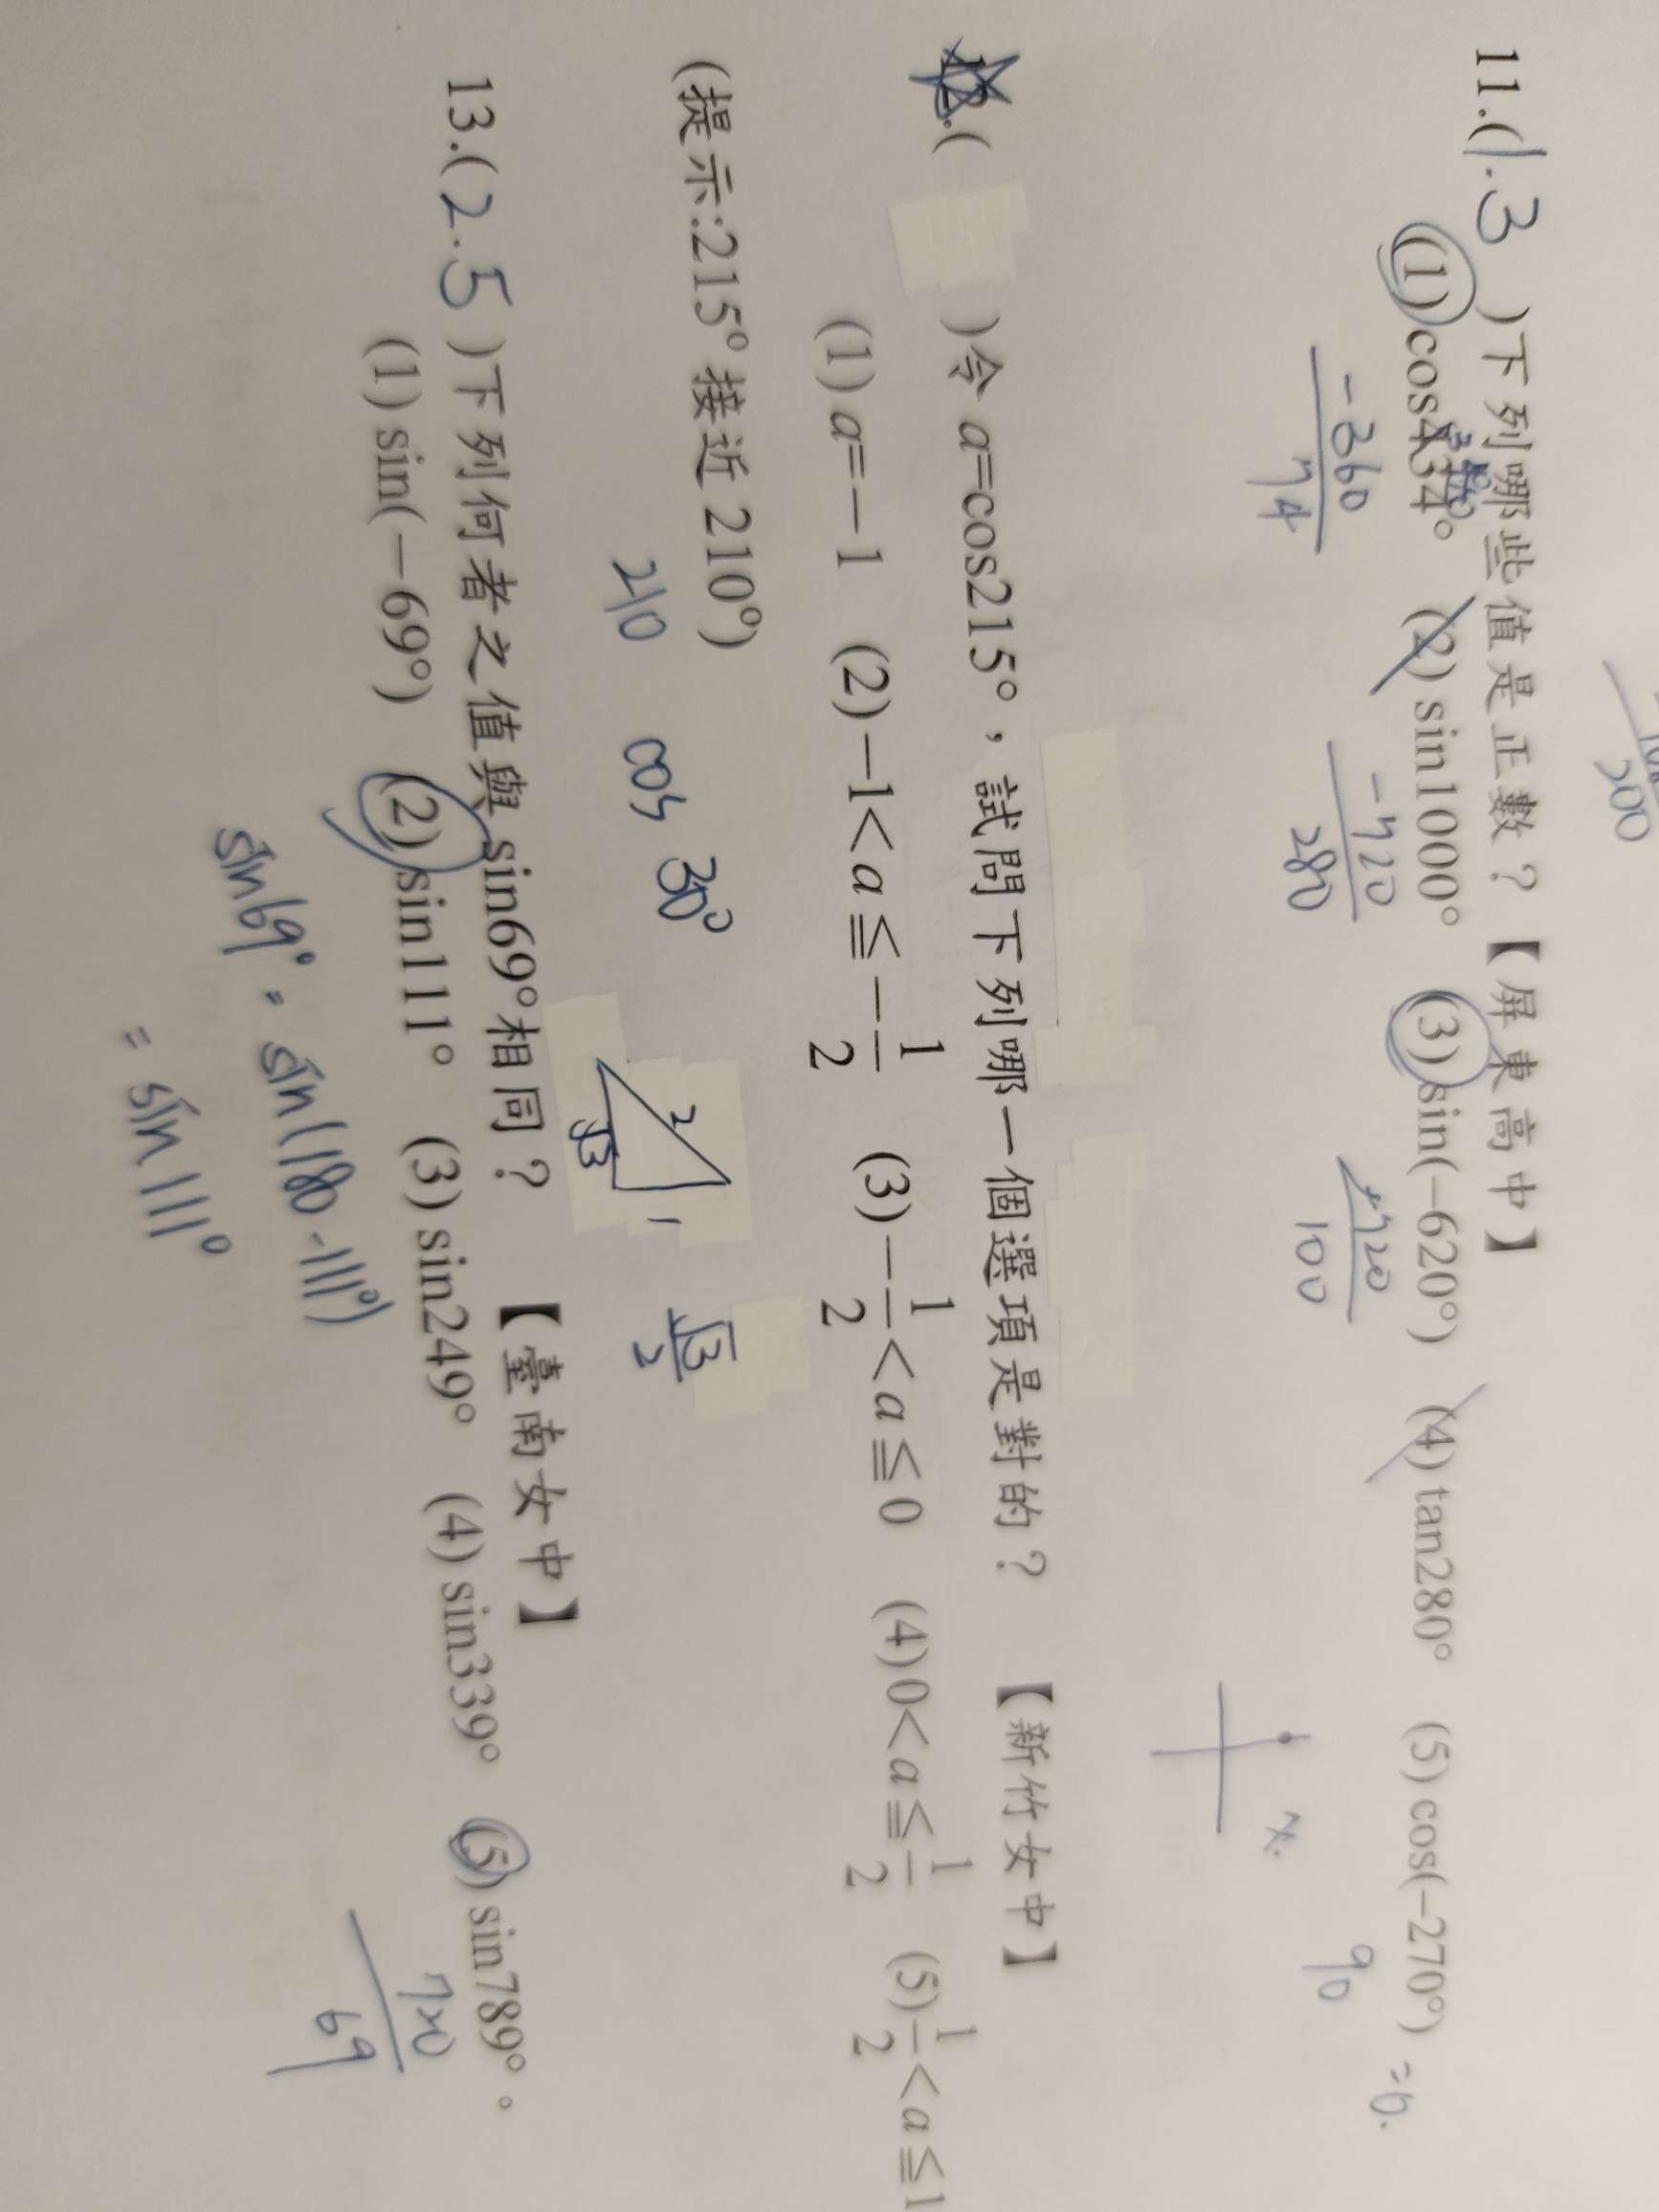 200
11.(1.3 )下列哪些值是正數？【屏東高中】
(1)cos434° (2)sin1000° (3)sin(−620°) (4)tan280° (5)cos(−270°) =0.
-360 -720 +720 90
74 280 100 x.
12.( )令 a=cos215°，試問下列哪一個選項是對的？ 【新竹女中】
(1)a=−1 (2)−1<a≦−1/2 (3)−1/2<a≦0 (4)0<a≦1/2 (5)1/2<a≦1
(提示:215°接近 210°)
210 cos 30° 2 √3 1 √3/2
13.(2.5 )下列何者之值與 sin69°相同？ 【臺南女中】
(1)sin(−69°) (2)sin111° (3)sin249° (4)sin339° (5)sin789°。
720
69
sin69° = sin(180-111°)
= sin111°